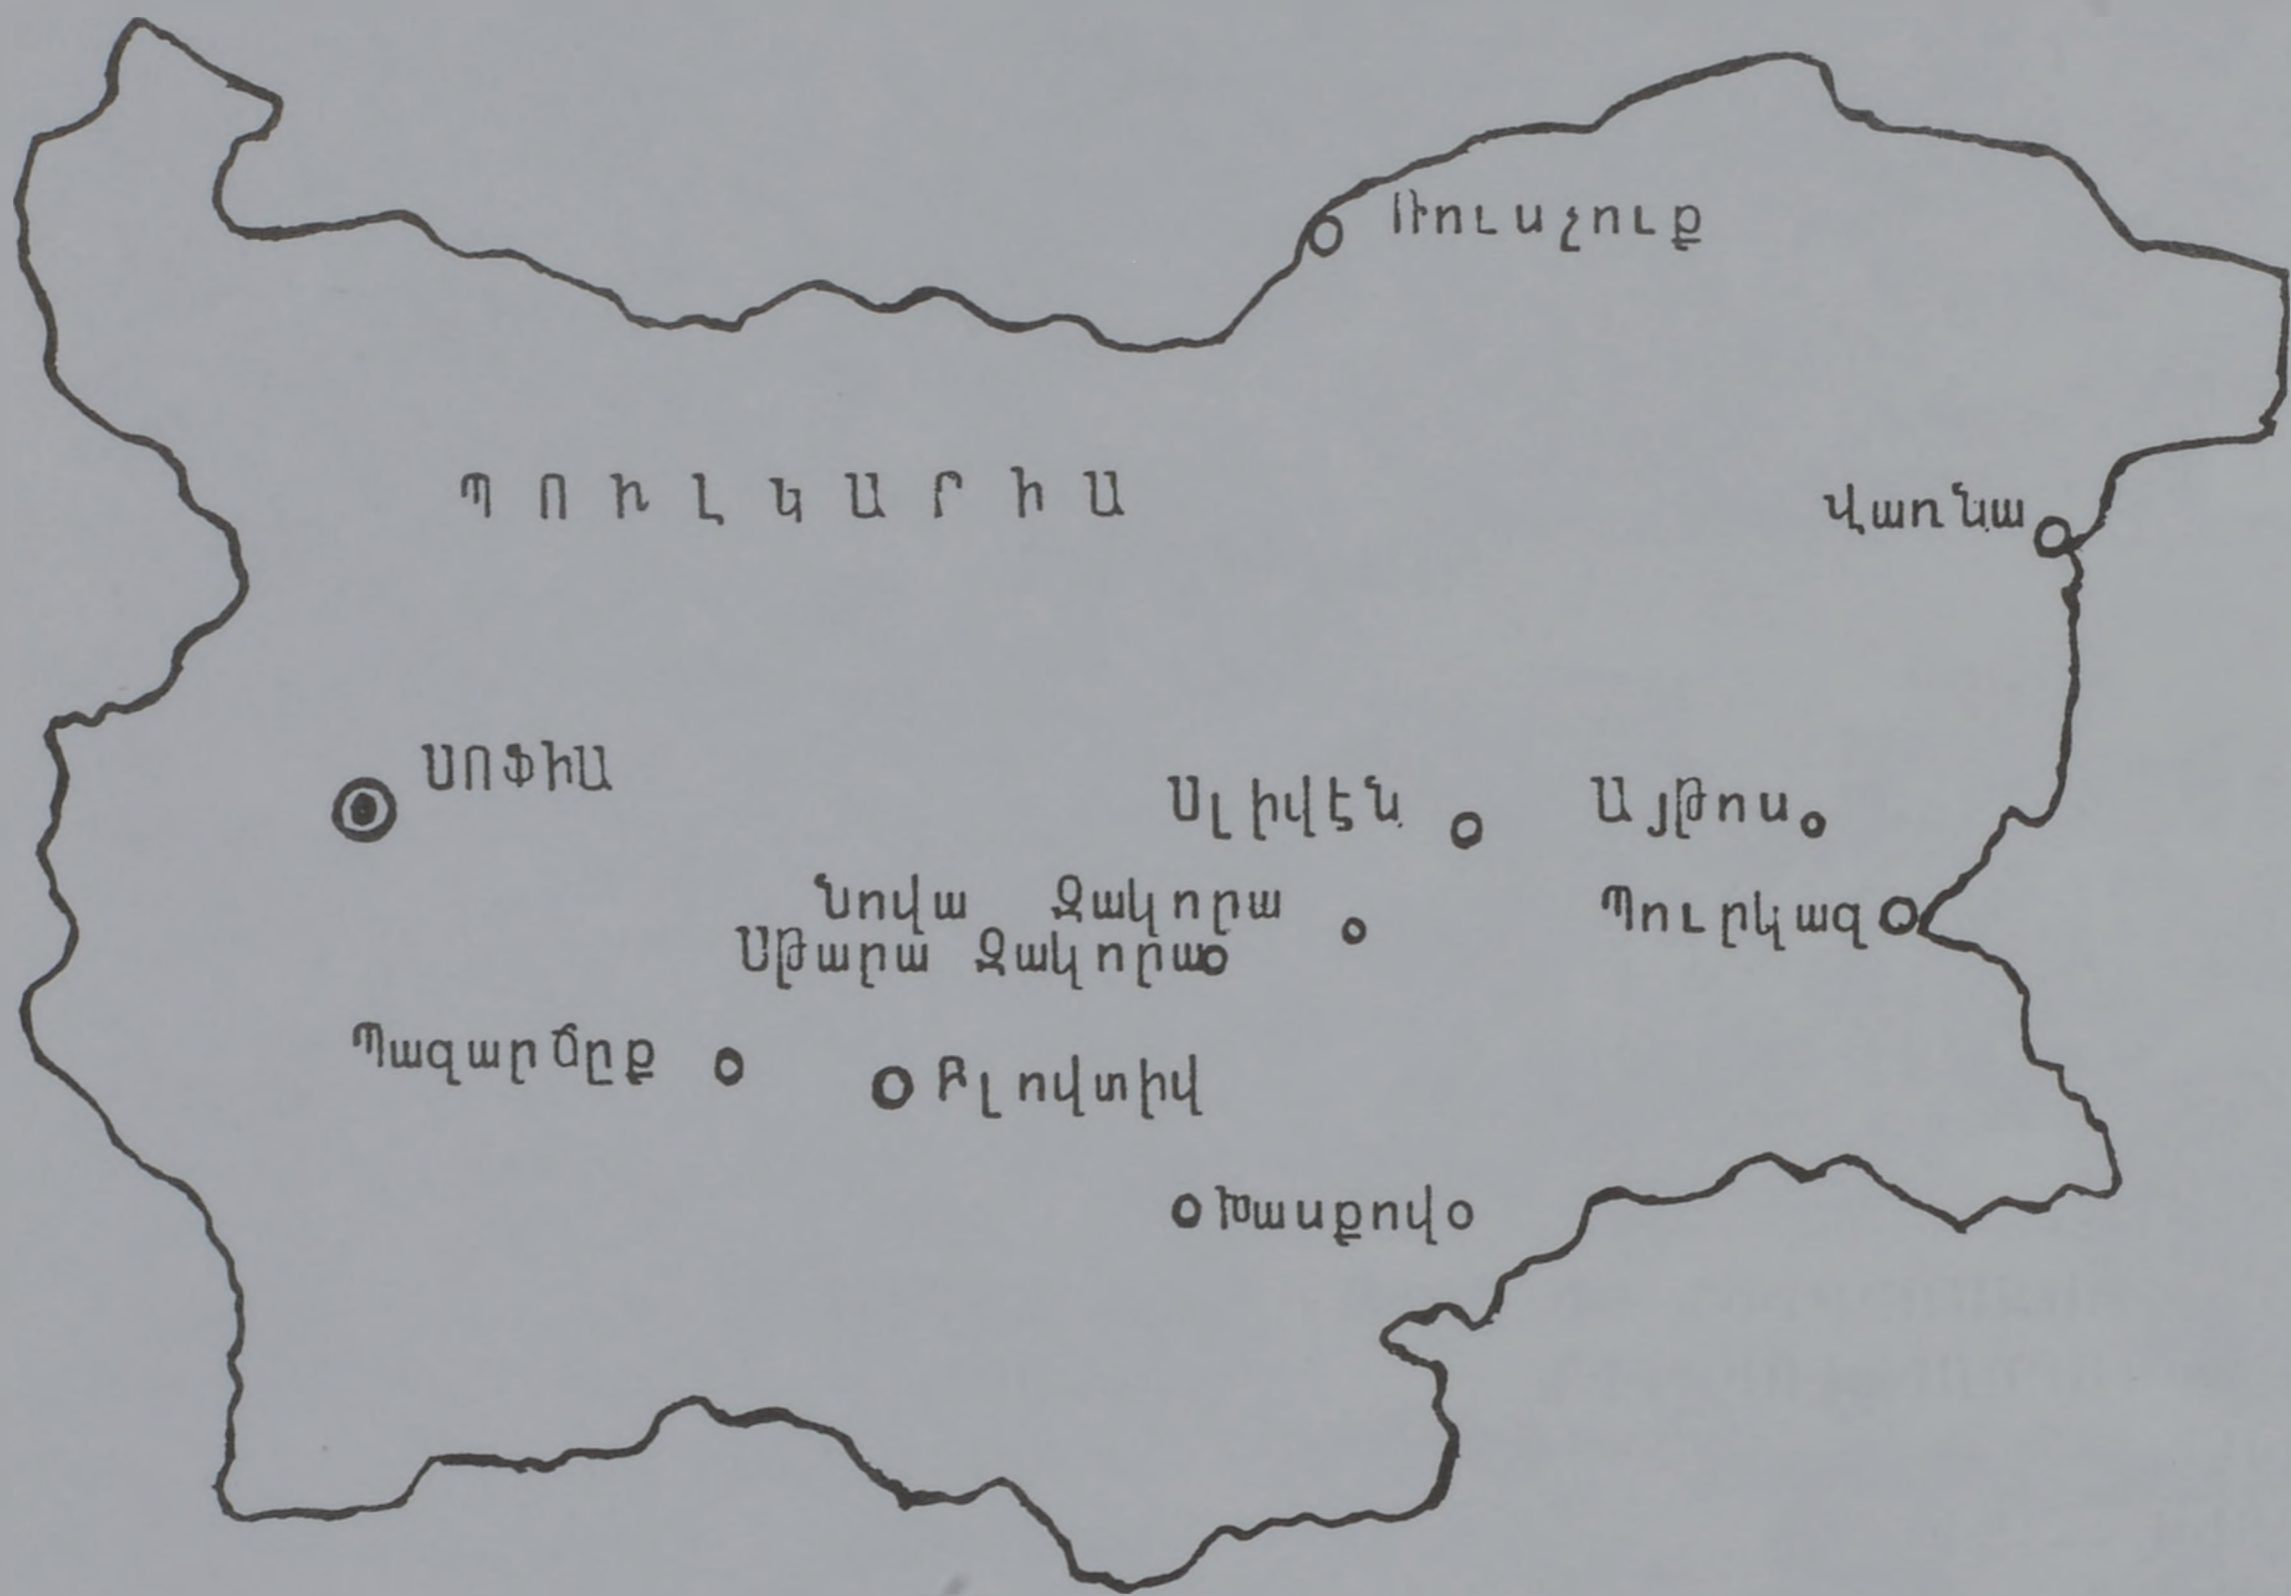 Ռուսչուք
ՊՈՒԼԿԱՐԻԱ
Վառնա
ՍՈՖԻԱ
Սլիվէն
Այթոս
Նովա Զակորա
Պուրկազ
Սթարա Զակորա
Պազարճըք
Բլովտիվ
Խասքովօ